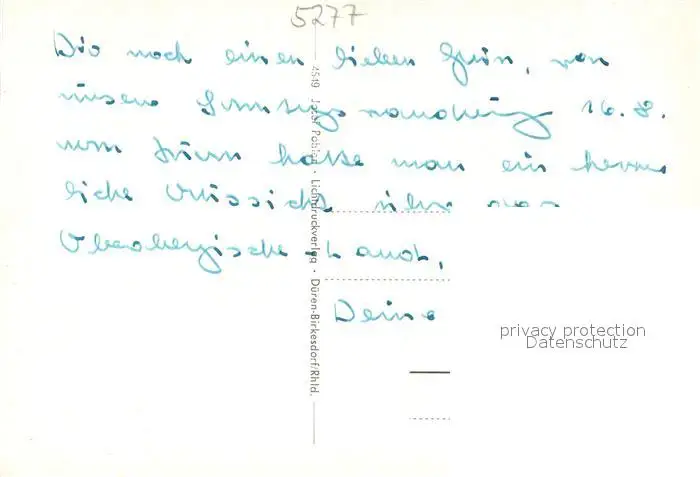 5277
Dir noch einen lieben Gruß, von
unserer Sonntagswanderung 16. 8.
vom Turm hatte man ein herr
liche Aussicht über das
Oberbergische Land,
Deine
4549 Josef Pohlen · Lichtdruckverlag · Düren-Birkesdorf/Rhld.
privacy protection
Datenschutz